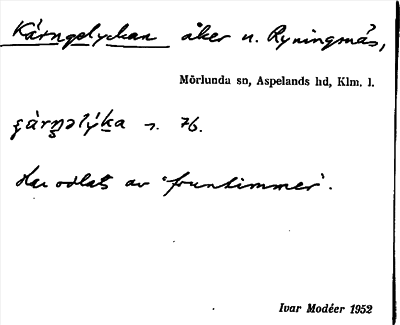 Kärngelyckan åker u. Ryningsnäs,
Mörlunda sn, Aspelands hd, Klm. l.
s. 76.
Har odlats av 'fruntimmer'.
Ivar Modéer 1952